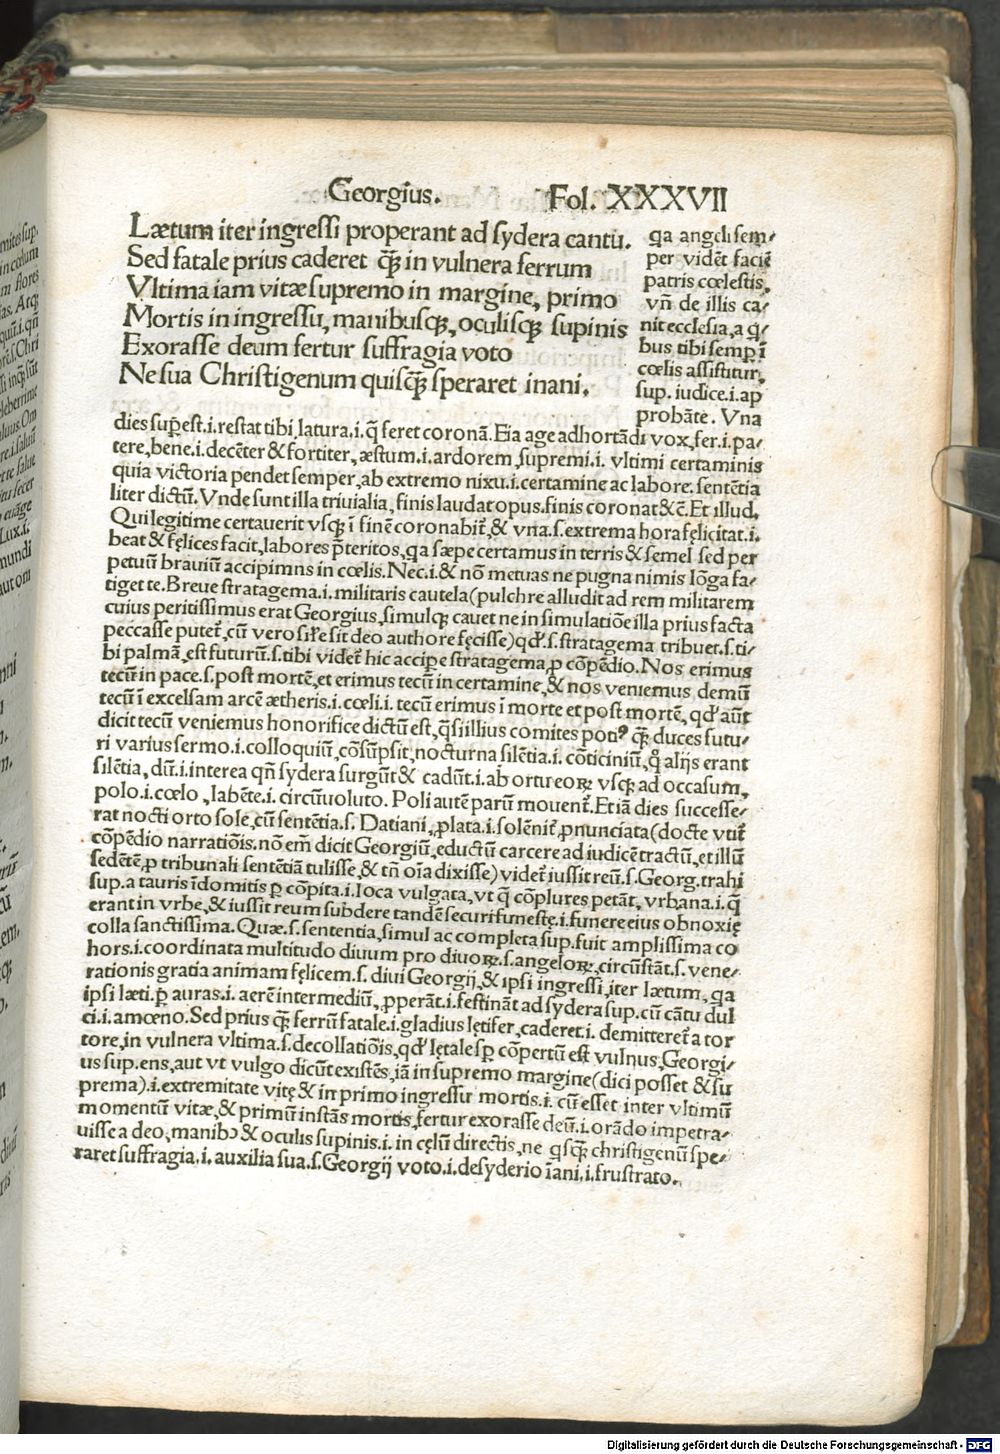 Georgius. Fol. XXXVII
Lætum iter ingressi properant ad sydera cantu.
Sed fatale prius caderet q̃ꝫ in vulnera ferrum
Vltima iam vitæ supremo in margine, primo
Mortis in ingressu, manibusqꝫ, oculisqꝫ supinis
Exorasse deum fertur suffragia voto
Ne sua Christigenum quisq̃ꝫ speraret inani.
ꝗa angeli sem⸗
per vidẽt faciẽ
patris cœlestis,
vñ de illis ca⸗
nit ecclesia, a ꝗ⸗
bus tibi semꝑ ĩ
cœlis assistitur,
sup. iudice .i. ap
probãte. Vna
dies suꝑest .i. restat tibi latura .i. q̃ feret coronã. Eia age adhortãdi vox, fer .i. pa⸗
tere, bene .i. decẽter & fortiter, æstum .i. ardorem supremi .i. vltimi certaminis
quia victoria pendet semper, ab extremo nixu .i. certamine ac labore. sentẽtia
liter dictũ. Vnde sunt illa triuialia, finis laudat opus. finis coronat &c̃. Et illud.
Qui legitime certauerit vsqꝫ ĩ finẽ coronabit̃, & vna .s. extrema hora fęlicitat .i.
beat & fęlices facit, labores p̃teritos, ꝗa sæpe certamus in terris & semel sed per
petuũ brauiũ accipimns in cœlis. Nec .i. & nõ metuas ne pugna nimis lõga fa⸗
tiget te. Breue stratagema .i. militaris cautela (pulchre alludit ad rem militarem
cuius peritissimus erat Georgius, simulqꝫ cauet ne in simulatiõe illa prius facta
peccasse putet̃, cũ vero sił̃e sit deo authore fęcisse) qđ .s. stratagema tribuet .s. ti⸗
bi palmã, est futurũ .s. tibi videt̃ hic accipe stratagema, ꝓ cõpẽdio. Nos erimus
tecũ in pace .s. post mortẽ, et erimus tecũ in certamine, & nos veniemus demũ
tecũ ĩ excelsam arcẽ ætheris .i. cœli .i. tecũ erimus ĩ morte et post mortẽ, qđ aũt
dicit tecũ veniemus honorifice dictũ est, q̃si illius comites potiꝰ q̃ꝫ duces futu⸗
ri varius sermo .i. colloquiũ, cõsũpsit, nocturna silẽtia .i. cõticiniũ, ꝙ alijs erant
silẽtia, dũ .i. interea qñ sydera surgũt & cadũt .i. ab ortu eoꝝ vsqꝫ ad occasum,
polo .i. cœlo, labẽte .i. circũuoluto. Poli autẽ parũ mouent̃. Etiã dies successe⸗
rat nocti orto sole, cũ sentẽtia .s. Datiani, ꝓlata .i. solẽnit̃ ꝓnunciata (docte vtit̃
cõpẽdio narratiõis. nõ em̃ dicit Georgiũ, eductũ carcere ad iudicẽ tractũ, et illũ
sedẽtẽ ꝓ tribunali sentẽtiã tulisse, & tñ oĩa dixisse) videt̃ iussit reũ .s. Georg. trahi
sup. a tauris ĩdomitis ꝑ cõpita .i. loca vulgata, vt q̃ cõplures petãt, vrbana .i. q̃
erant in vrbe, & iussit reum subdere tandẽ securi funestę .i. funere eius obnoxię
colla sanctissima. Quæ .s. sententia, simul ac completa sup. fuit amplissima co
hors .i. coordinata multitudo diuum pro diuoꝝ .s. angeloꝝ, circũstãt .s. vene⸗
rationis gratia animam fęlicem .s. diui Georgij, & ipsi ingressi, iter lætum, ꝗa
ipsi læti. ꝑ auras .i. aerẽ intermediũ, ꝓperãt .i. festinãt ad sydera sup. cũ cãtu dul
ci .i. amœno. Sed prius q̃ꝫ ferrũ fatale .i. gladius lętifer, caderet .i. demitteret̃ a tor
tore, in vulnera vltima .s. decollatiõis, qđ lętale sꝑ cõpertũ est vulnus, Georgi⸗
us sup. ens, aut vt vulgo dicũt existẽs, iã in supremo margine (dici posset & su
prema) .i. extremitate vitę & in primo ingressu mortis .i. cũ esset inter vltimũ
momentũ vitæ, & primũ instãs mortis, fertur exorasse deũ .i. orãdo impetra⸗
uisse a deo, manibꝰ & oculis supinis .i. in cęlũ directis, ne ꝗsq̃ꝫ christigenũ spe⸗
raret suffragia .i. auxilia sua .s. Georgij voto .i. desyderio ĩani .i. frustrato.
Digitalisierung gefördert durch die Deutsche Forschungsgemeinschaft - DFG